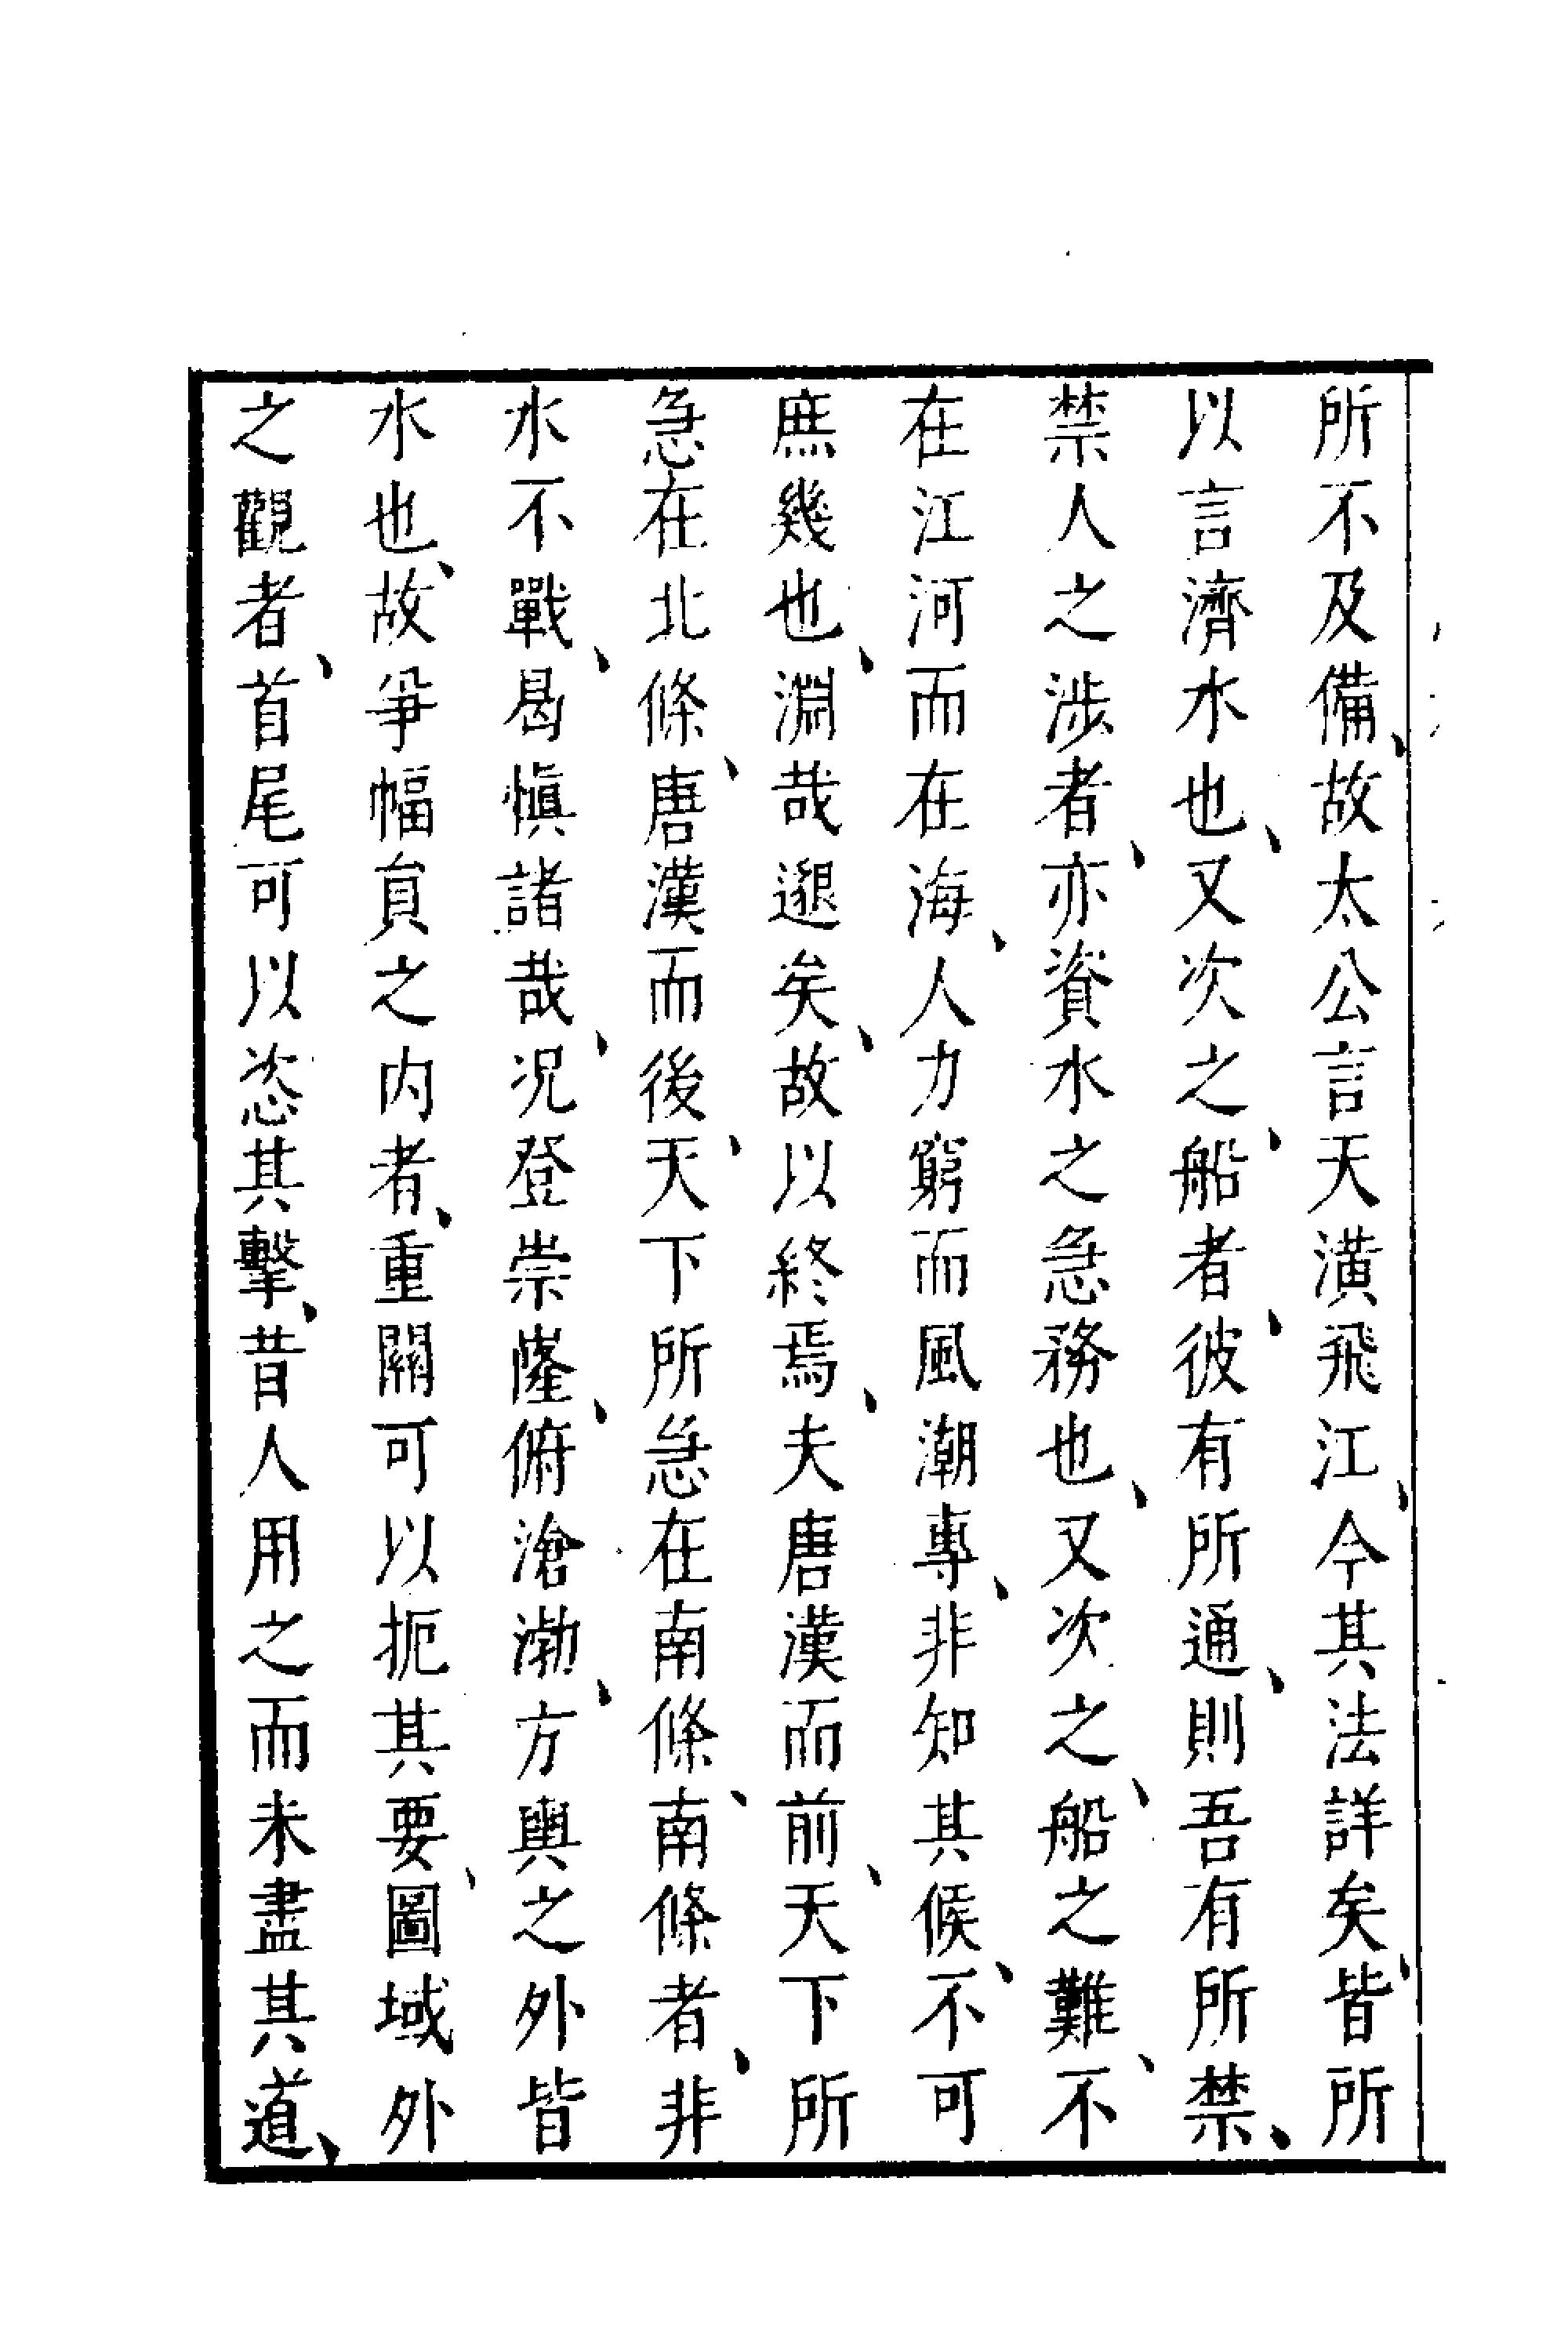 所不及備、故太公言天潢飛江、今其法詳矣、皆所
以言濟水也、又次之船者、彼有所通、則吾有所禁、
禁人之涉者、亦資水之急務也、又次之船之難、不
在江河而在海、人力窮而風潮專、非知其候、不可
庶幾也、淵哉邈矣、故以終焉、夫唐漢而前、天下所
急在北條、唐漢而後、天下所急在南條、南條者、非
水不戰、曷愼諸哉、况登崇嶐、俯滄渤、方輿之外皆
水也、故爭幅員之内者、重關可以扼其要、圖域外
之觀者、首尾可以恣其擊、昔人用之而未盡其道、